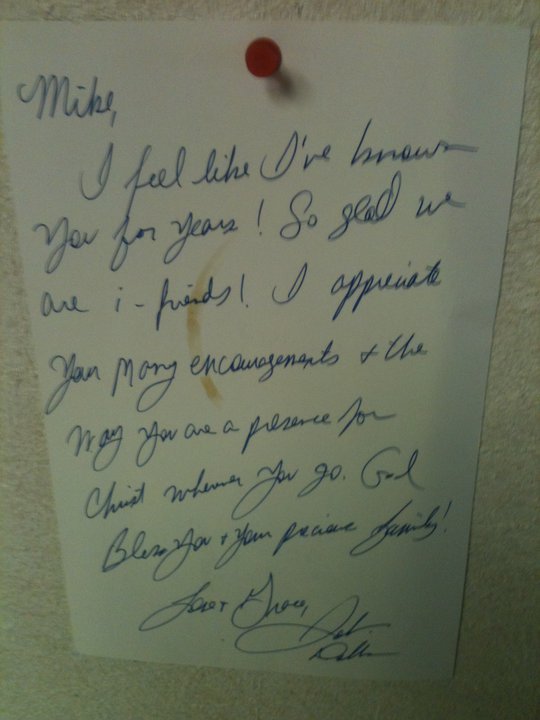 Mike,
I feel like I've known
You for years! So glad we
are i-friends! I appreciate
Your many encouragements + the
way you are a presence for
Christ wherever you go. God
Bless You + Your precious family!
Love + Grace,